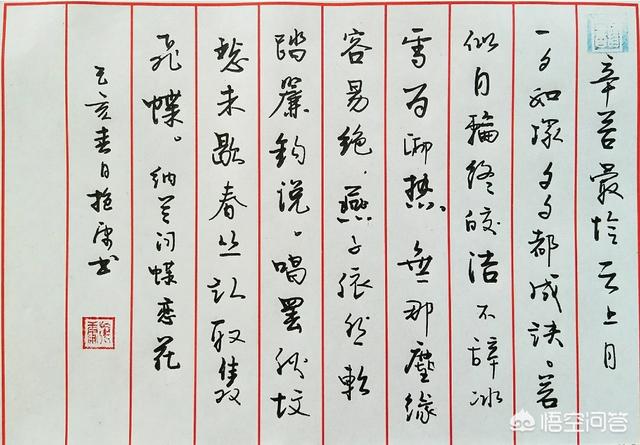 辛苦最怜天上月
一夕如环夕夕都成诀。若
似月輪终皎洁不辞冰
雪为卿热無那塵缘
容易绝.燕子依然軟
踏簾鈎说。唱罢秋坟
愁未歇春丛认取双
飞蝶。纳兰词蝶恋花
己亥春日抱书
悟空问答